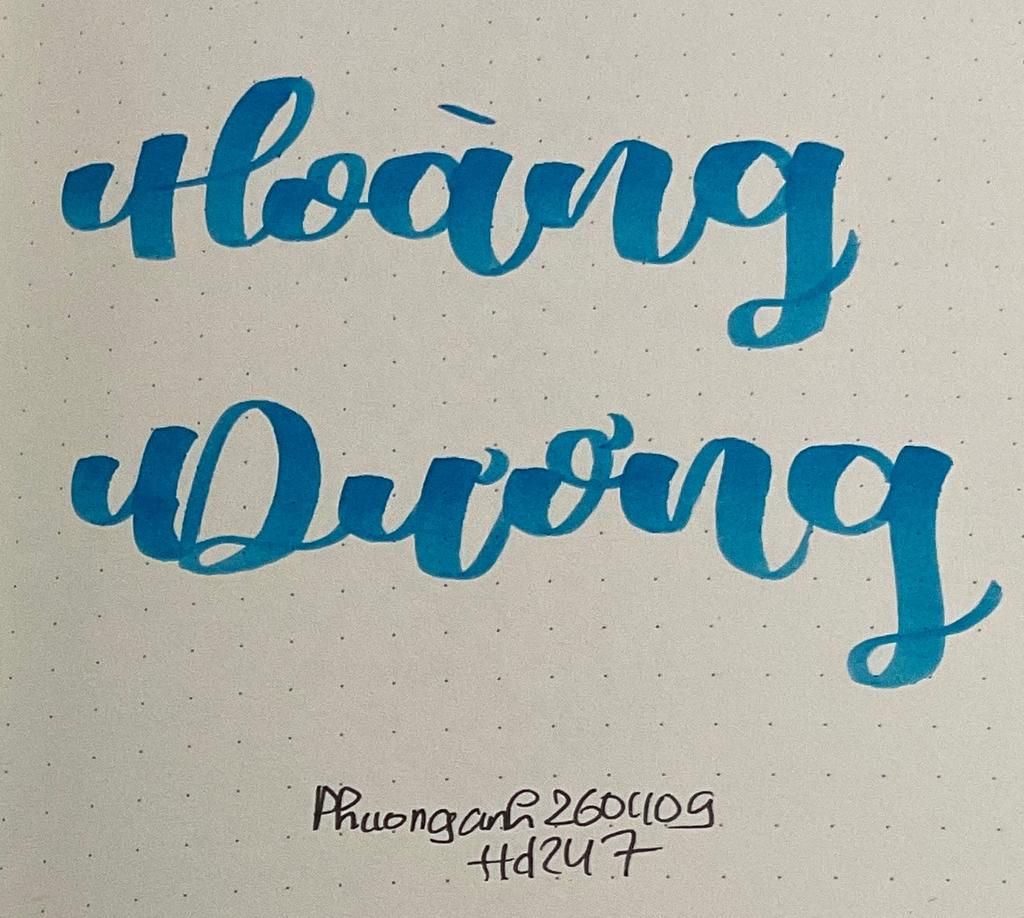 Hoàng
Dương
Phuonganh260409
Hd247